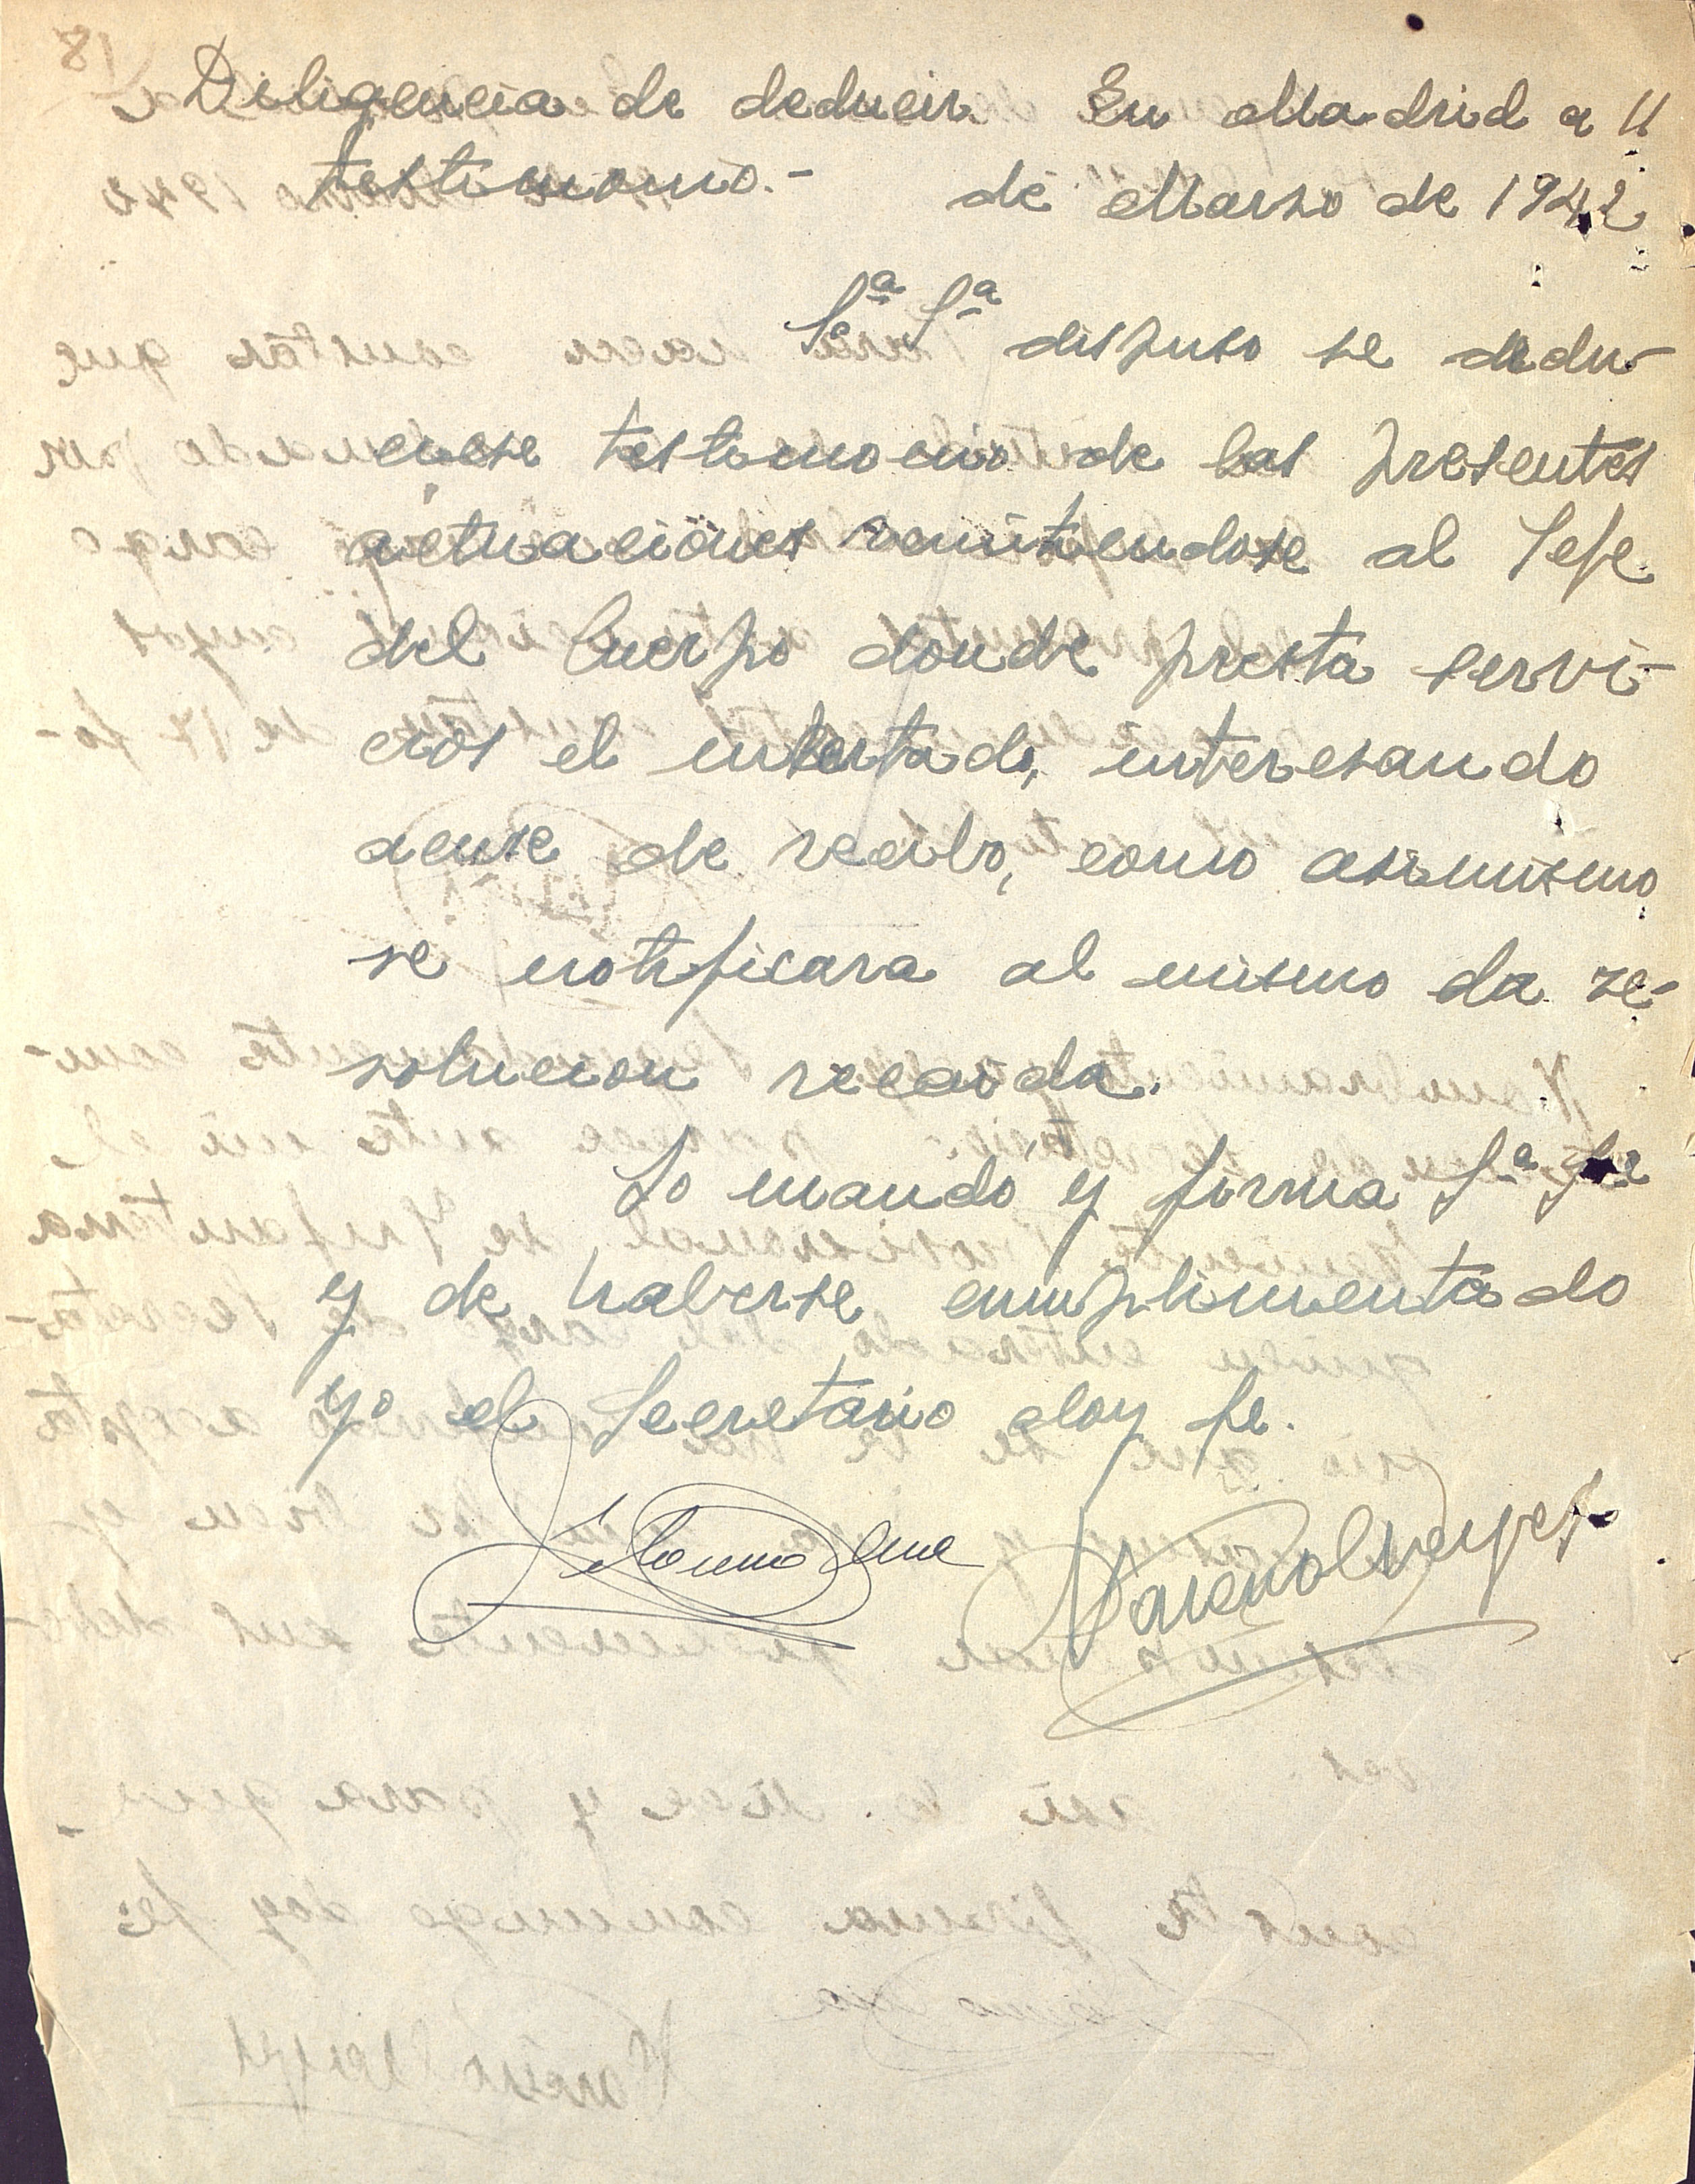 Diligencia de deducir En Madrid a 11
testimonio.- de Marzo de 1942
Sª Sª dispuso se dedu-
ciese testimonio de las presentes
actuaciones remitiendose al Jefe
del Cuerpo donde presta servi-
cios el encartado, interesando
acuse de recibo, como asimismo
se notificara al mismo la re-
solucion recaida.
Lo mandó y firma Sª Sª
y de haberse cumplimentado
yo el Secretario doy fe.